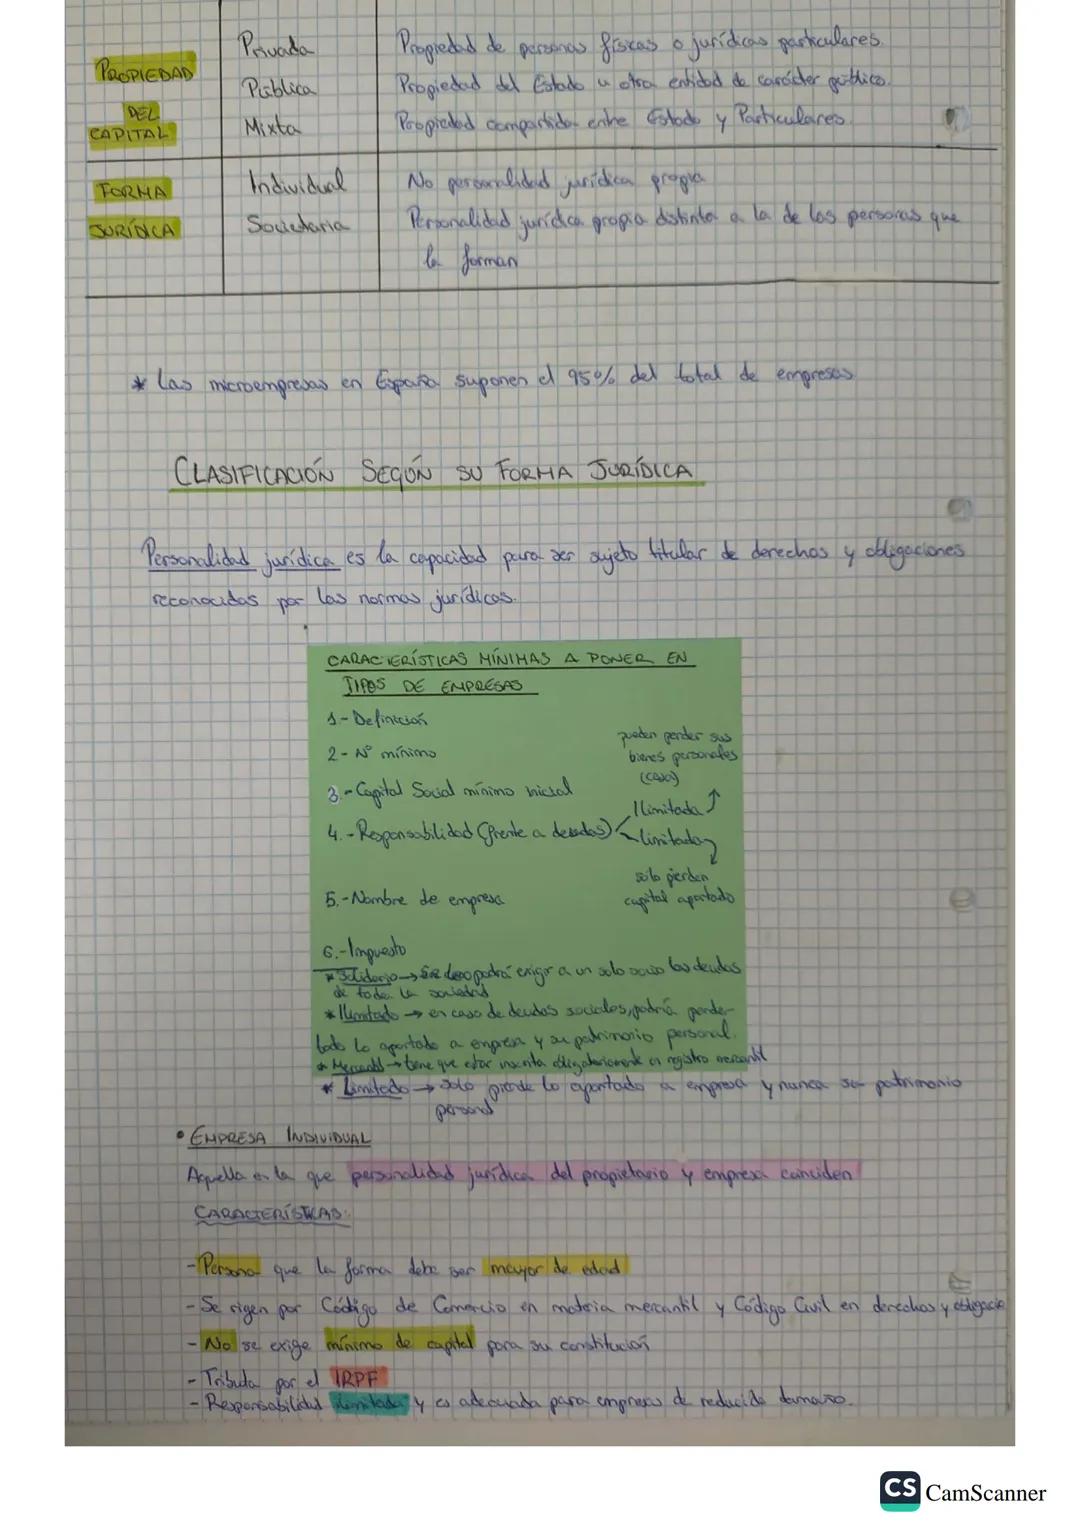 PROPIEDAD DEL CAPITAL
Privada Propiedad de personas físicas o jurídicas particulares.
Pública Propiedad del Estado u otra entidad de carácter público.
Mixta Propiedad compartida entre Estado y Particulares.
FORMA JURÍDICA
Individual No personalidad jurídica propia
Societaria Personalidad jurídica propia distinta a la de las personas que
la forman
* Las microempresas en España suponen el 95% del total de empresas
CLASIFICACIÓN SEGÚN SU FORMA JURÍDICA
Personalidad jurídica es la capacidad para ser sujeto titular de derechos y obligaciones
reconocidas por las normas jurídicas.
CARACTERÍSTICAS MÍNIMAS A PONER EN
TIPOS DE EMPRESAS
1.- Definición
2.- Nº mínimo
3.- Capital Social mínimo inicial
4.- Responsabilidad (frente a deudas)
Ilimitada
pueden perder sus
bienes personales
(casa)
limitada
solo pierden
capital aportado
5.- Nombre de empresa
6.- Impuesto
* Solidario → podrá exigir a un solo socio las deudas
de toda la sociedad
* Ilimitado → en caso de deudas sociales, podría perder
todo lo aportado a empresa y su patrimonio personal.
* Mercantil → tiene que estar inscrita obligatoriamente en registro mercantil
* Limitado → solo pierde lo aportado a empresa y nunca su patrimonio
personal
• EMPRESA INDIVIDUAL
Aquella en la que personalidad jurídica del propietario y empresa coinciden
CARACTERÍSTICAS:
- Persona que la forma debe ser mayor de edad
- Se rigen por Código de Comercio en materia mercantil y Código Civil en derechos y obligacio
- No se exige mínimo de capital para su constitución
- Tributa por el IRPF
- Responsabilidad ilimitada y es adecuada para empresas de reducido tamaño.
CS CamScanner